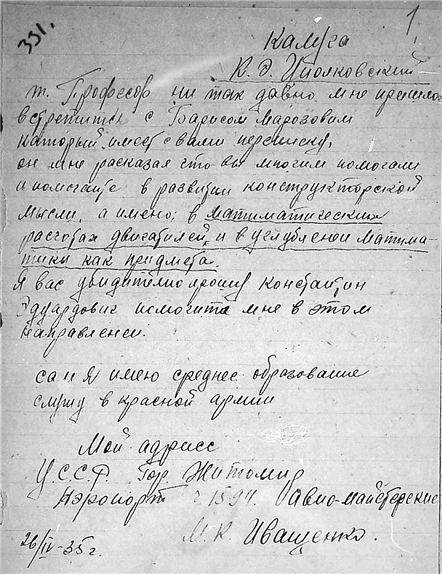 351.
1
Калуга
К. Э. Циолковский
т. Професор ни так давно мне пришлос
встретитсь с Барисом Марозовим
каторый имеет с вами переписку,
он мне расказал что вы многим помогали
и помогаите в развитии конструкторской
мысли, а имено: в матиматических
расчотах двигатилей, и в углублении матима-
тики как придмета.
Я вас убидително прошу Константин
Эдуардович помогите мне в этом
направлении.
сам Я имею среднее образование
служу в красной армии
Мой адресс
УССР. Гор Житомир
Аэропорт 1594. Авио-майстерские
М. К. Иващенко.
26/IV-35 г.